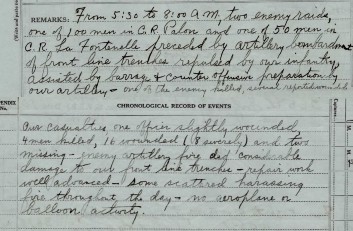 REMARKS: From 5:30 to 8:00 A.M, two enemy raids,
one of 100 men in C.R. Palon, and one of 50 men in
C.R. La Fontenelle preceded by artillery bombardment
of front line trenches repulsed by our infantry,
assisted by barrage & counter offensive preparation by
our artillery - one of the enemy killed, several reported wounded
CHRONOLOGICAL RECORD OF EVENTS
Our casualties, one officer slightly wounded
4 men killed, 16 wounded (8 severely) and two
missing - enemy artillery fire did considerable
damage to our front line trenches - repair work
well advanced - some scattered harassing
fire throughout the day - no aeroplane or
balloon activity.